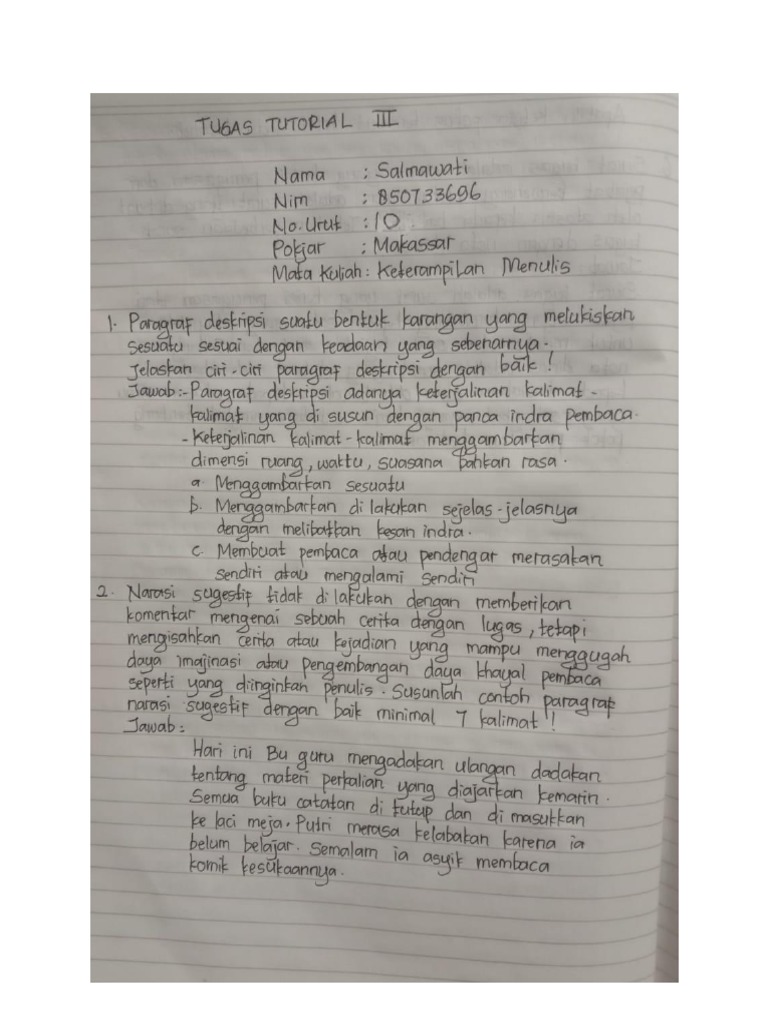 TUGAS TUTORIAL III
Nama : Salmawati
Nim : 850733696
No. Urut : 10
Pokjar : Makassar
Mata Kuliah : Keterampilan Menulis
1. Paragraf deskripsi suatu bentuk karangan yang melukiskan
sesuatu sesuai dengan keadaan yang sebenarnya.
Jelaskan ciri-ciri paragraf deskripsi dengan baik !
Jawab :- Paragraf deskripsi adanya keterjalinan kalimat-
kalimat yang di susun dengan panca indra pembaca.
- Keterjalinan kalimat-kalimat menggambarkan
dimensi ruang, waktu, suasana bahkan rasa.
a. Menggambarkan sesuatu
b. Menggambarkan di lakukan sejelas-jelasnya
dengan melibatkan kesan indra.
c. Membuat pembaca atau pendengar merasakan
sendiri atau mengalami sendiri
2. Narasi sugestif tidak di lakukan dengan memberikan
komentar mengenai sebuah cerita dengan lugas, tetapi
mengisahkan cerita atau kejadian yang mampu menggugah
daya imajinasi atau pengembangan daya khayal pembaca
seperti yang diinginkan penulis. Susunlah contoh paragraf
narasi sugestif dengan baik minimal 7 kalimat !
Jawab :
Hari ini Bu guru mengadakan ulangan dadakan
tentang materi perkalian yang diajarkan kemarin.
Semua buku catatan di tutup dan di masukkan
ke laci meja. Putri merasa kelabakan karena ia
belum belajar. Semalam ia asyik membaca
komik kesukaannya.